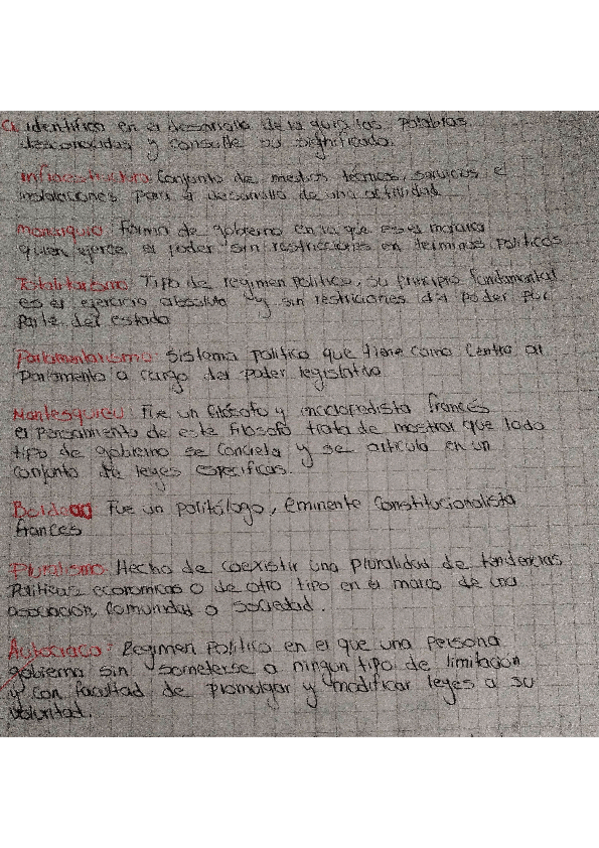 identifica en el desarrollo de la guia las palabras
desconocidas y consulte su significado.
Conjunto de medios técnicos, servicios e
instalaciones para el desarrollo de una actividad.
monarquia: Forma de gobierno en la que es el monarca
quien ejerce el poder sin restricciones en terminos politicos
Totalitarismo: Tipo de regimen politico, su principio fundamental
es el ejercicio absoluto y sin restriciones del poder por
parte del estado
Parlamentarismo: Sistema politico que tiene como centro al
parlamento a cargo del poder legislativo
Montesquieu: Fue un filósofo y francés
el pensamiento de este filosofo trata de mostrar que todo
tipo de gobierno se concreta y se articula en un
conjunto de leyes especificas.
Fue un politólogo, eminente constitucionalista
frances
Pluralismo: Hecho de coexistir una pluralidad de tendencias
politicas economicas o de otro tipo en el marco de una
asociación, comunidad o sociedad.
Autocracia: Regimen Politico en el que una persona
gobierna sin someterse a ningun tipo de limitación
y con facultad de promulgar y modificar leyes a su
voluntad.